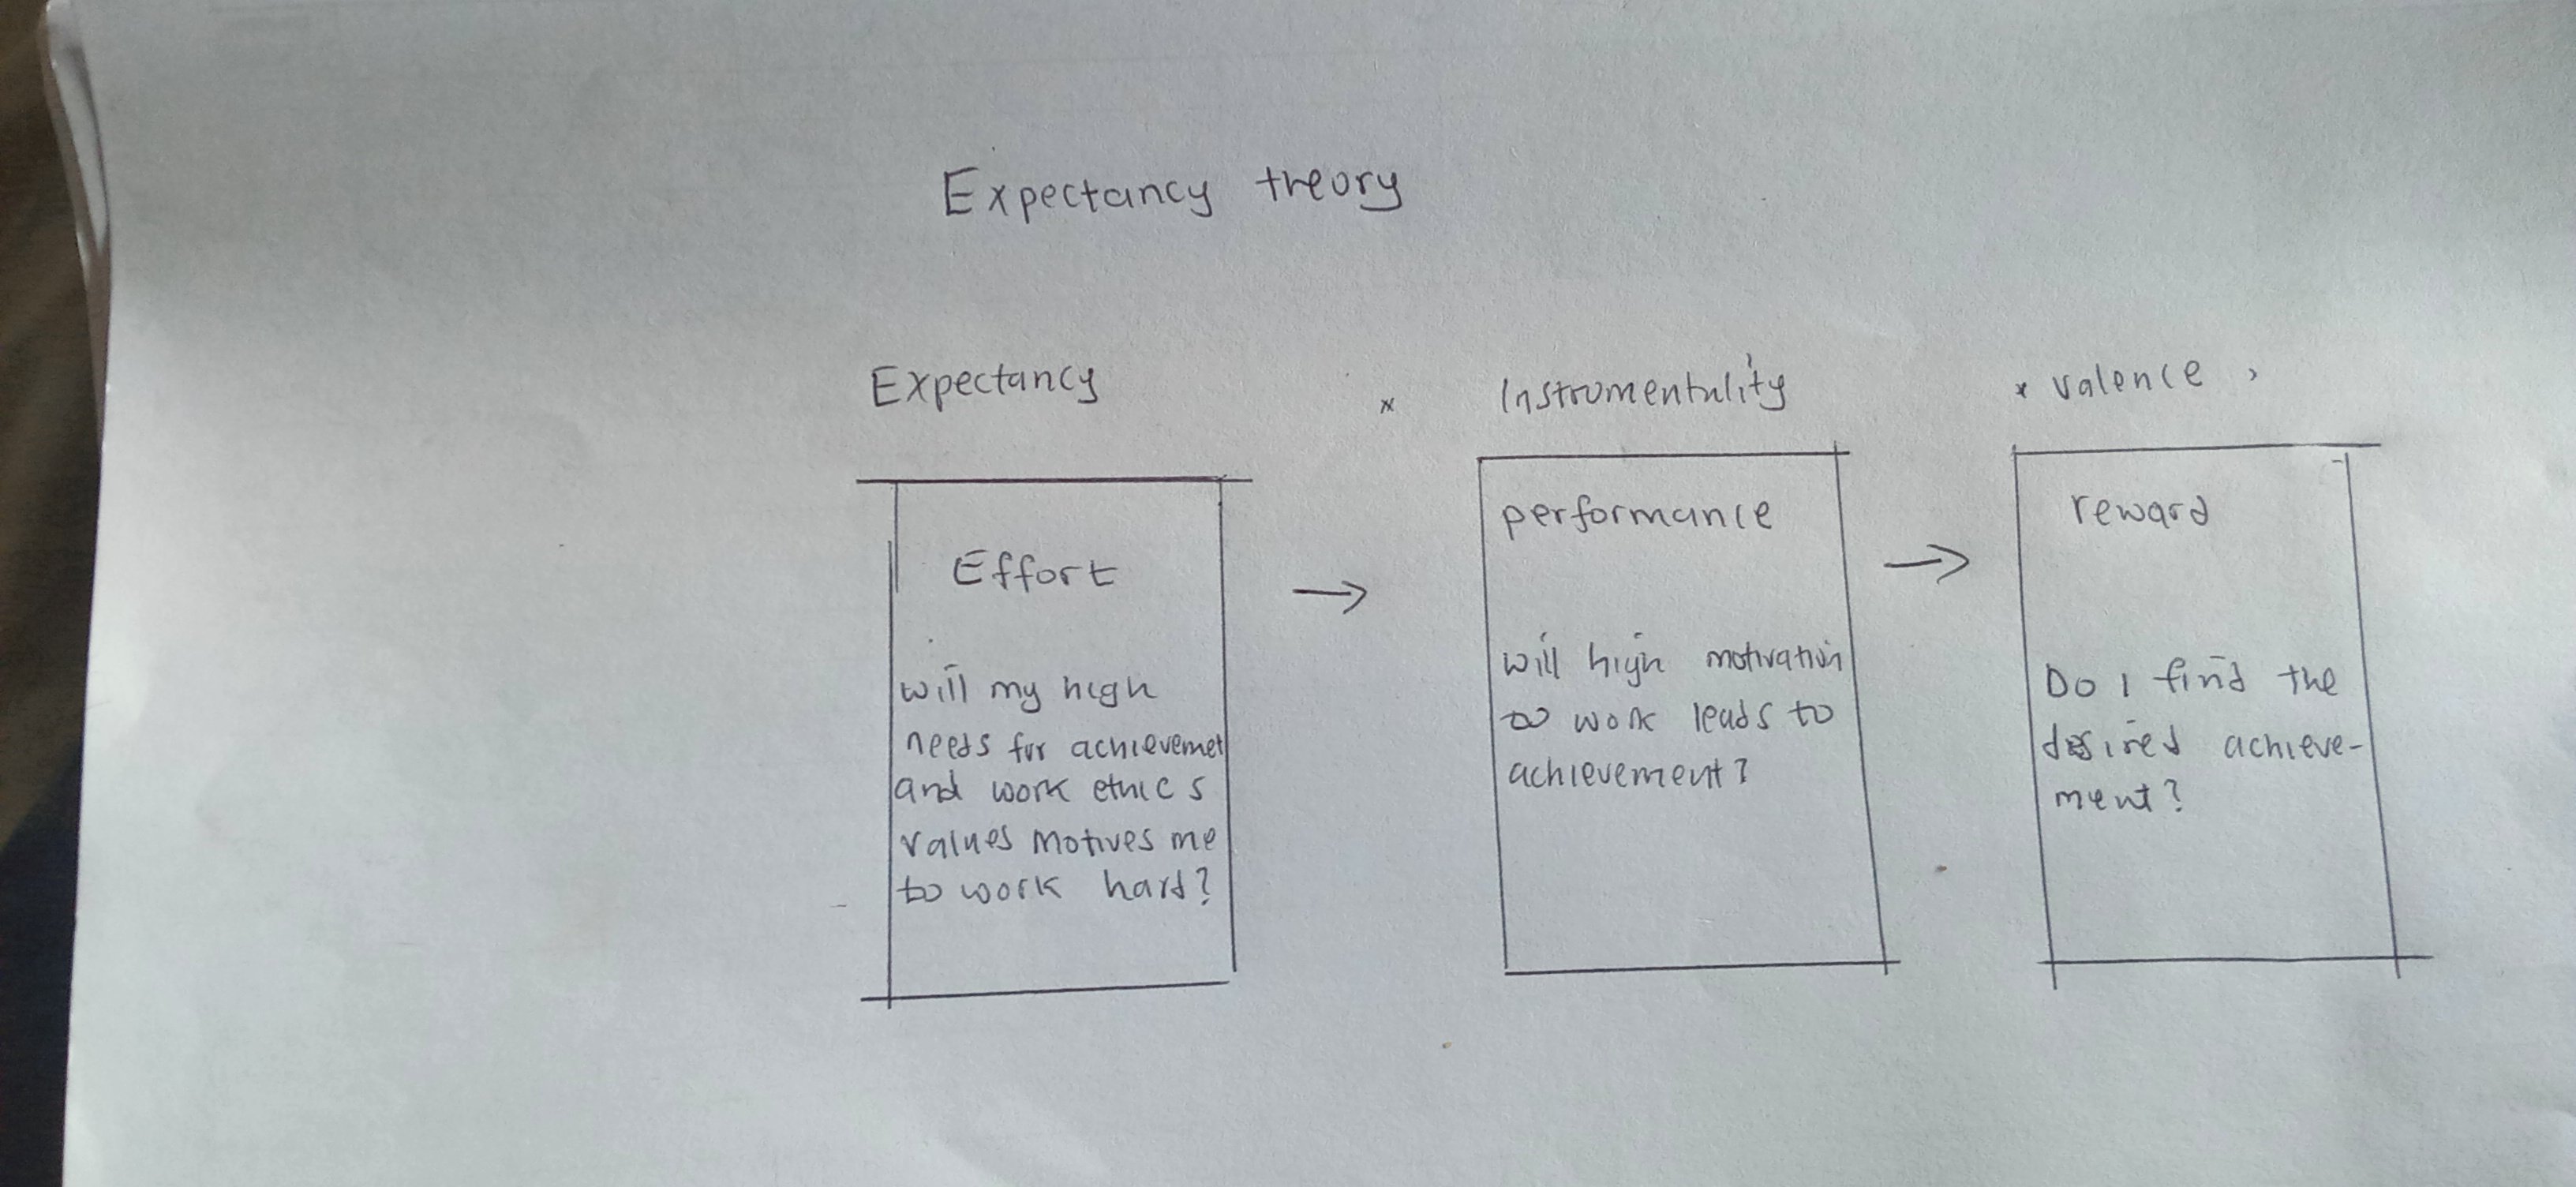 Expectancy theory
Expectancy
x
Instromentality
x valence
Effort
will my high
needs for achievemet
and work ethics
values motives me
to work hard?
→
performance
will high motivation
to work leads to
achievement?
→
reward
Do I find the
desired achieve-
ment?